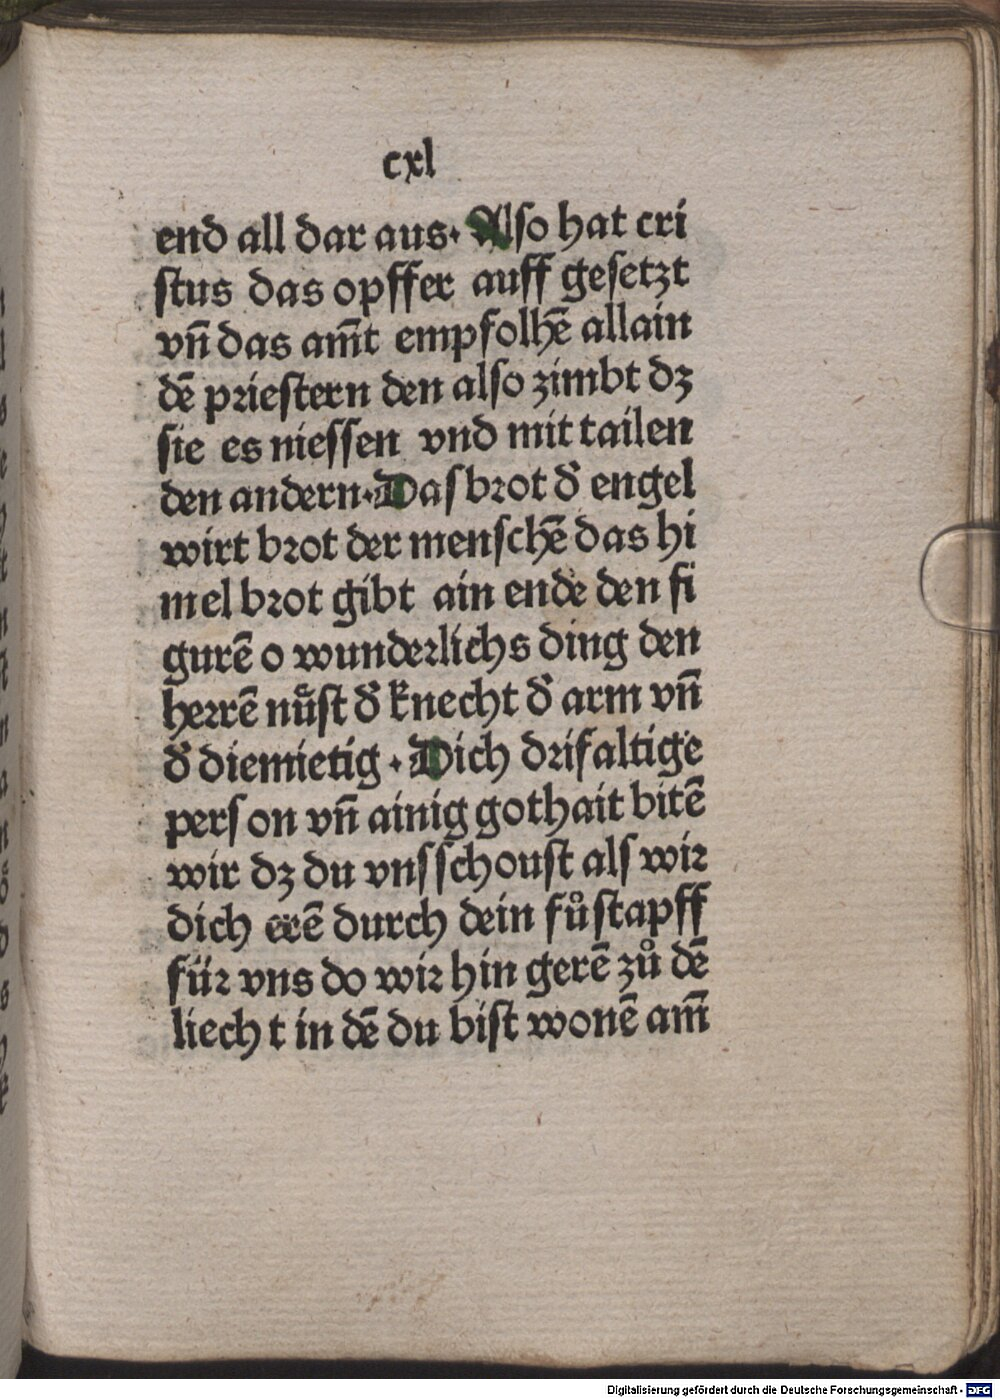 cxl
end all dar aus· Also hat cri
ſtus das opffer auff geſetzt
vñ das am̃t empfolhē allain
dē prieſtern den alſo zimbt dz
ſie es nieſſen vnd mit tailen
den andern·Das brot đ engel
wirt brot der menſchē das hi
mel brot gibt ain ende den fi
gurē o wunderlichs ding den
herrē nůſt đ knecht đ arm vñ
đ diemietig · Dich drifaltige
perſon vñ ainig gothait bitē
wir dz du vnſ ſchouſt alſ wir
dich erē durch dein fůſtapff
für vns do wir hin gerē zů dē
liecht in dē du biſt wonē am̃
Digitalisierung gefördert durch die Deutsche Forschungsgemeinschaft - DFG